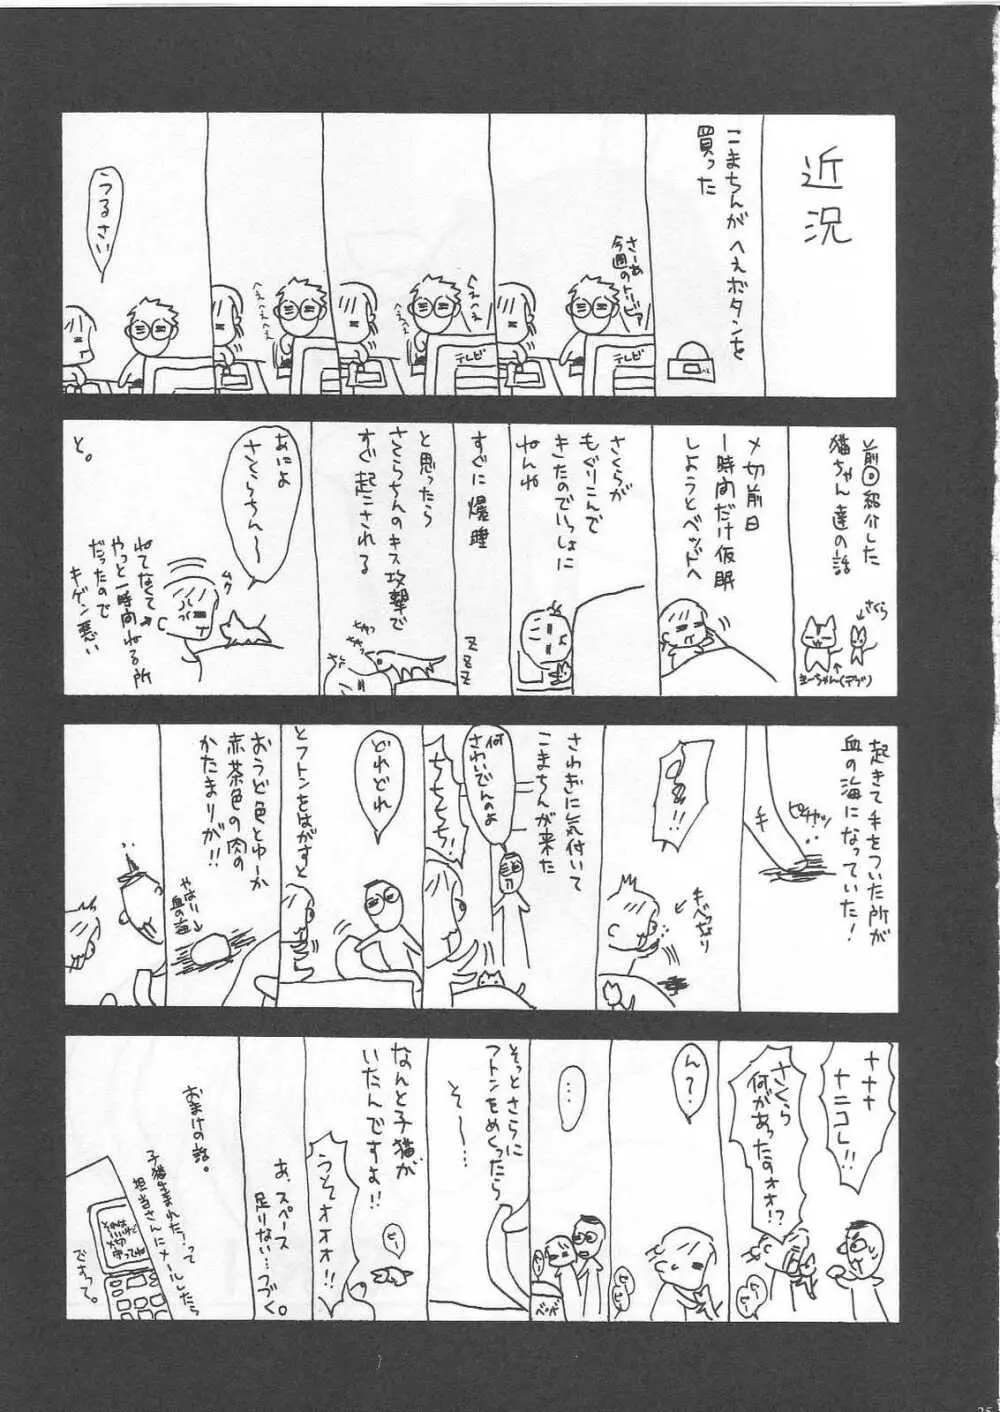 近況
こまちんがへぇボタンを
買った
さーあ
今週のトリビア
テレビ
へぇへぇ
テレビ
へぇへぇへぇ
へぇへぇへぇ
うるさい
前回紹介した
猫ちゃん達の話
さくら
まーちゃん(デブ)
〆切前日
一時間だけ仮眠
しようとベッドへ
さくらが
もぐりこんで
きたのでいっしょに
ねんね
すぐに爆睡
ZZZ
と思ったら
さくらちんのキス攻撃で
すぐ起こされる
あによ
さくらちん〜
ムク
ねてなくて
やっと一時間ねる所
だったので
キゲン悪い
と。
起きて手をついた所が
血の海になっていた!
ピチャッ
手
!!
ギャべなり
さわぎに気付いて
こまちんが来た
何
さわいでんのよ
ちちちち!
どれどれ
とフトンをはがすと
おうど色とゆーか
赤茶色の肉の
かたまりが!!
やはり
血の海
ナナナ
ナニコレ!!
さくら
何があったのォォ!?
ん?
…
ベッド
そっとさらに
フトンをめくったら
そ〜…
なんと子猫が
いたんですよ!!
ピー
うっそォォォ!!
あ、スペース
足りない…つづく。
おまけの話。
子猫生まれた!って
担当さんにメールしたら
ですって。
25